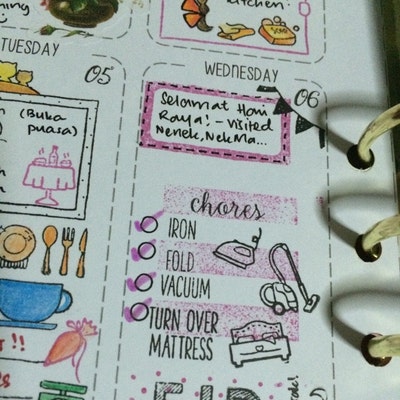 kitchen!
TUESDAY
05
(Buka
puasa)
!!
WEDNESDAY
06
Selamat Hari
Raya! - visited
Nenek, NekMa...
chores
IRON
FOLD
VACUUM
TURN OVER
MATTRESS
EID